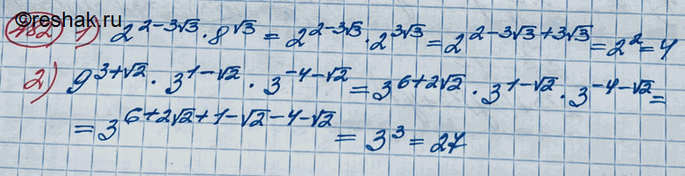 ©reshak.ru
482) 1) 2^{2-3√3} · 8^{√3} = 2^{2-3√3} · 2^{3√3} = 2^{2-3√3+3√3} = 2^2 = 4
2) 9^{3+√2} · 3^{1-√2} · 3^{-4-√2} = 3^{6+2√2} · 3^{1-√2} · 3^{-4-√2} =
= 3^{6+2√2+1-√2-4-√2} = 3^3 = 27